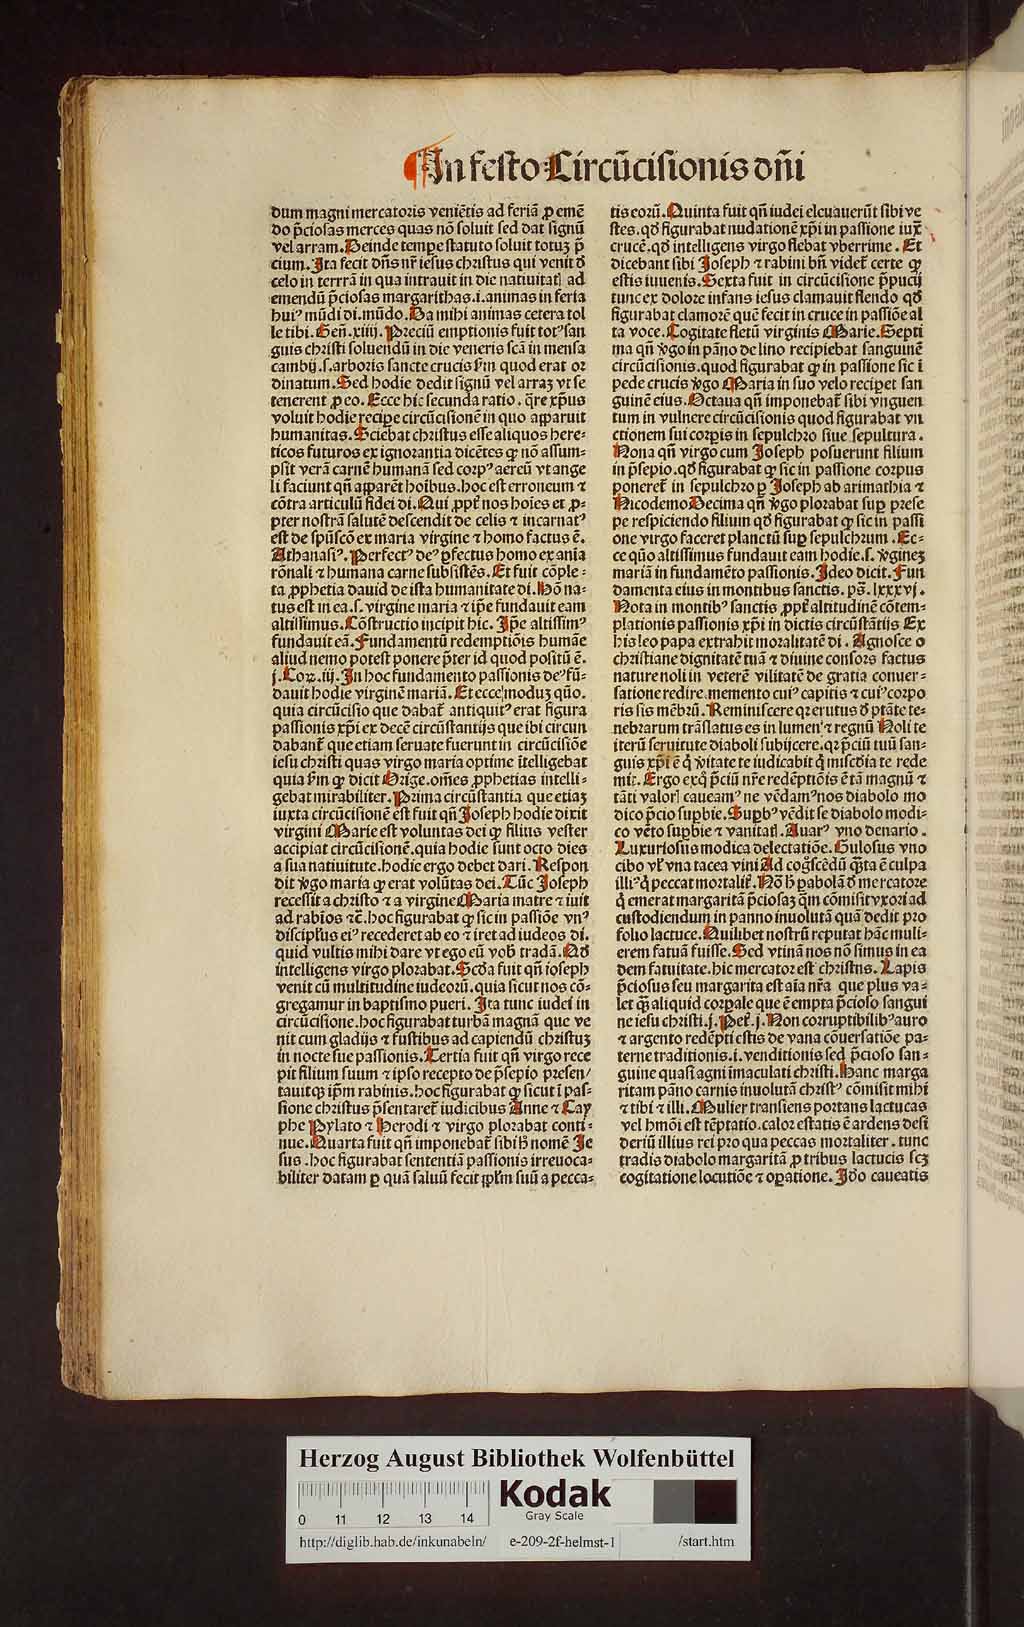 In festo Circūcisionis dn̄i
dum magni mercatoris veniētis ad feriā ꝓ emē
do p̄ciosas merces quas nō soluit sed dat signū
vel arram. Deinde tempe statuto soluit totuʒ p̄
cium. Ita fecit dn̄s nr̄ iesus christus qui venit
celo in terrrā in qua intrauit in die natiuitat ad
emendū p̄ciosas margarithas .i. animas in feria
huiꝰ mūdi di. mūdo. Da mihi animas cetera tol
le tibi. Gen̄. xiiij. Preciū emptionis fuit totꝰ san
guis christi soluendū in die veneris scā in mensa
cambij .s. arboris sancte crucis in quod erat or
dinatum. Sed hodie dedit signū vel arraʒ vt se
tenerent ꝓ eo. Ecce hic secunda ratio. qr̄e xp̄us
voluit hodie recipe circūcisionē in quo apparuit
humanitas. Sciebat christus esse aliquos here-
ticos futuros ex ignorantia dicētes ꝙ nō assum-
psit verā carnē humanā sed corpꝰ aereū vt ange
li faciunt qn̄ apparēt hoībus. hoc est erroneum ⁊
cōtra articulū fidei di. Qui ꝓpt̄ nos hoīes et ꝓ-
pter nostrā salutē descendit de celis ⁊ incarnatꝰ
est de spūscō ex maria virgine ⁊ homo factus ē.
Athanasiꝰ. Perfectꝰ deꝰ ꝑfectus homo ex aīa
rōnali ⁊ humana carne subsistēs. Et fuit cōple-
ta ꝓphetia dauid de ista humanitate di. Hō na-
tus est in ea .s. virgine maria ⁊ ip̄e fundauit eam
altissimus. Cōstructio incipit hic. Ip̄e altissimꝰ
fundauit eā. Fundamentū redemptiōis humāe
aliud nemo potest ponere p̄ter id quod positū ē.
j. Cor. iij. In hoc fundamento passionis deꝰ fū-
dauit hodie virginē mariā. Et ecce moduʒ quō.
quia circūcisio que dabat̄ antiquitꝰ erat figura
passionis xp̄i ex decē circūstantijs que ibi circun
dabant̄ que etiam seruate fuerunt in circūcisiōe
iesu christi quas virgo maria optime ītelligebat
quia ꝙ dicit Orige. om̄es ꝓphetias intelli-
gebat mirabiliter. Prima circūstantia que etiaʒ
iuxta circūcisionē est fuit qn̄ Joseph hodie dixit
virgini Marie est voluntas dei ꝙ filius vester
accipiat circūcisionē. quia hodie sunt octo dies
a sua natiuitute. hodie ergo debet dari. Respon
dit vgo maria ꝙ erat volūtas dei. Tūc Joseph
recessit a christo ⁊ a virgine Maria matre ⁊ iuit
ad rabīos ⁊c̄. hoc figurabat ꝙ sic in passiōe vnꝰ
discipłus eiꝰ recederet ab eo ⁊ iret ad iudeos di.
quid vultis mihi dare vt ego eū vob tradā. Qđ
intelligens virgo plorabat. Scđa fuit qn̄ ioseph
venit cū multitudine iudeorū. quia sicut nos cō-
gregamur in baptismo pueri. Ita tunc iudei in
circūcisione. hoc figurabat turbā magnā que ve
nit cum gladijs ⁊ fustibus ad capiendū christuʒ
in nocte sue passionis. Tertia fuit qn̄ virgo rece
pit filium suum ⁊ ipso recepto de p̄sepio presen/
tauitqʒ ip̄m rabinis. hoc figurabat ꝙ sicut ī pas-
sione christus p̄sentaret̄ iudicibus Anne ⁊ Cay
phe Pylato ⁊ Herodi ⁊ virgo plorabat conti-
nue. Quarta fuit qn̄ imponebat̄ sibi nomē Je
sus. hoc figurabat sententiā passionis irreuoca-
biliter datam ꝑ quā saluū fecit suū a pecca-
tis eorū. Quinta fuit qn̄ iudei elcuauerūt sibi ve
stes. qđ figurabat nudationē xp̄i in passione iux̄
crucē. qđ intelligens virgo flebat vberrime. Et
dicebant sibi Joseph ⁊ rabini bn̄ videt̄ certe ꝙ
estis iuuenis. Sexta fuit in circūcisione p̄pucij
tunc ex dolore infans iesus clamauit flendo qđ
figurabat clamorē quē fecit in cruce in passiōe al
ta voce. Cogitate fletū virginis Marie. Septi
ma qn̄ vgo in pāno de lino recipiebat sanguinē
circūcisionis. quod figurabat ꝙ in passione sic ī
pede crucis vgo Maria in suo velo recipet san
guinē eius. Octaua qn̄ imponebat̄ sibi vnguen
tum in vulnere circūcisionis quod figurabat vn
ctionem sui corpis in sepulchro siue sepultura.
Nona qn̄ virgo cum Joseph posuerunt filium
in p̄sepio. qđ figurabat ꝙ sic in passione corpus
poneret̄ in sepulchro ꝑ Joseph ab arimathia ⁊
Nicodemo Decima qn̄ vgo plorabat suꝑ prese
pe respiciendo filium qđ figurabat ꝙ sic in passi
one virgo faceret planctū suꝑ sepulchrum. Ec-
ce quō altissimus fundauit eam hodie .s. vgineʒ
mariā in fundamēto passionis. Ideo dicit. Fun
damenta eius in montibus sanctis. ps̄. lxxxvj.
Nota in montibꝰ sanctis ꝓpt̄ altitudinē cōtem-
plationis passionis xp̄i in dictis circūstātijs Ex
his leo papa extrahit moralitatē di. Agnosce o
christiane dignitatē tuā ⁊ diuine consors factus
nature noli in veterē vilitatē de gratia conuer-
satione redire. memento cuiꝰ capitis ⁊ cuiꝰ corpo
ris sis mēbrū. Reminiscere qr erutus đ ptāte te-
nebrarum trāslatus es in lumen ⁊ regnū Noli te
iterū seruitute diaboli subijcere. qr p̄ciū tuū san-
guis xp̄i ē q vitate te iudicabit q miscđia te rede
mit. Ergo ex p̄ciū nr̄e redēptiōis ē tā magnū ⁊
tāti valor caueamꝰ ne vēdamꝰ nos diabolo mo
dico p̄cio supbie. Supbꝰ vēdit se diabolo modi-
co vēto supbie ⁊ vanitat. Auarꝰ vno denario.
Luxuriosus modica delectatiōe. Gulosus vno
cibo vł vna tacea vini Ad cōcēdū ē culpa
illiꝰ q peccat mortalit̄. Nō parabolā đ mercatore
q emerat margaritā p̄ciosaʒ quā cōmisit vxori ad
custodiendum in panno inuolutā quā dedit pro
folio lactuce. Quilibet nostrū reputat hāc muli-
erem fatuā fuisse. Sed vtinā nos nō simus in ea
dem fatuitate. hic mercator est christus. Lapis
p̄ciosus seu margarita est aīa nr̄a que plus va-
let aliquid corpale que ē empta p̄cioso sangui
ne iesu christi. j. Pet̄. j. Non corruptibilibꝰ auro
⁊ argento redēpti estis de vana cōuersatiōe pa-
terne traditionis .i. venditionis sed p̄cioso san-
guine quasi agni īmaculati christi. Hanc marga
ritam pāno carnis inuolutā christꝰ cōmisit mihi
⁊ tibi ⁊ illi. Mulier transiens portans lactucas
vel hmōi est tēptatio. calor estatis ē ardens desi
deriū illius rei pro qua peccas mortaliter. tunc
tradis diabolo margaritā ꝓ tribus lactucis scʒ
cogitatione locutiōe ⁊ oꝑatione. Iđo caueatis
Herzog August Bibliothek Wolfenbüttel
0 11 12 13 14
Kodak
Gray Scale
http://diglib.hab.de/inkunabeln/ e-209-2f-helmst-1 /start.htm